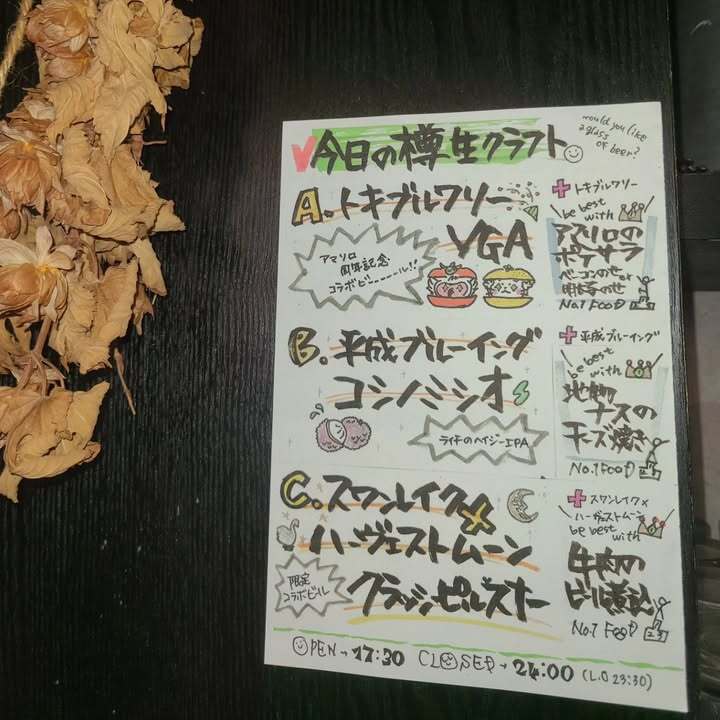 今日の樽生クラフト
would you like
a glass
of beer?
A.トキブルワリー
VGA
アマソロ
周年記念
コラボビーーーール!!
+トキブルワリー
be best
with
ポテサラ
ベーコンのせor
明太子のせ
No.1 FOOD
B.平成ブルーイング
コシノミシオ
ライチのヘイジーIPA
+平成ブルーイング
be best
with
地物
ナスの
チーズ焼き
No.1 FOOD
C.スワンレイク×
ハーヴェストムーン
クラッシュピルスナー
限定
コラボビール
+スワンレイク×
ハーヴェストムーン
be best
with
牛肉の
ビール煮込
No.1 FOOD
OPEN→17:30 CLOSED→24:00 (L.O 23:30)